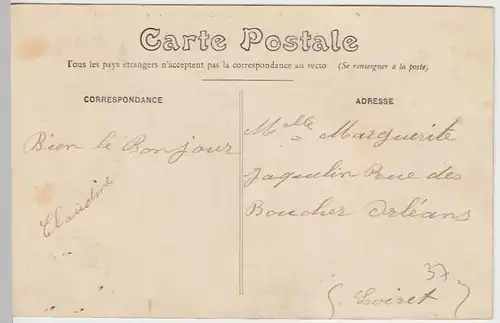 Carte Postale
Tous les pays étrangers n'acceptent pas la correspondance au recto (Se renseigner à la poste)
CORRESPONDANCE
Bien le Bonjour
Claudine
ADRESSE
Mlle Marguerite
Jaquelin Rue des
Boucher Orléans
37
(Loiret)